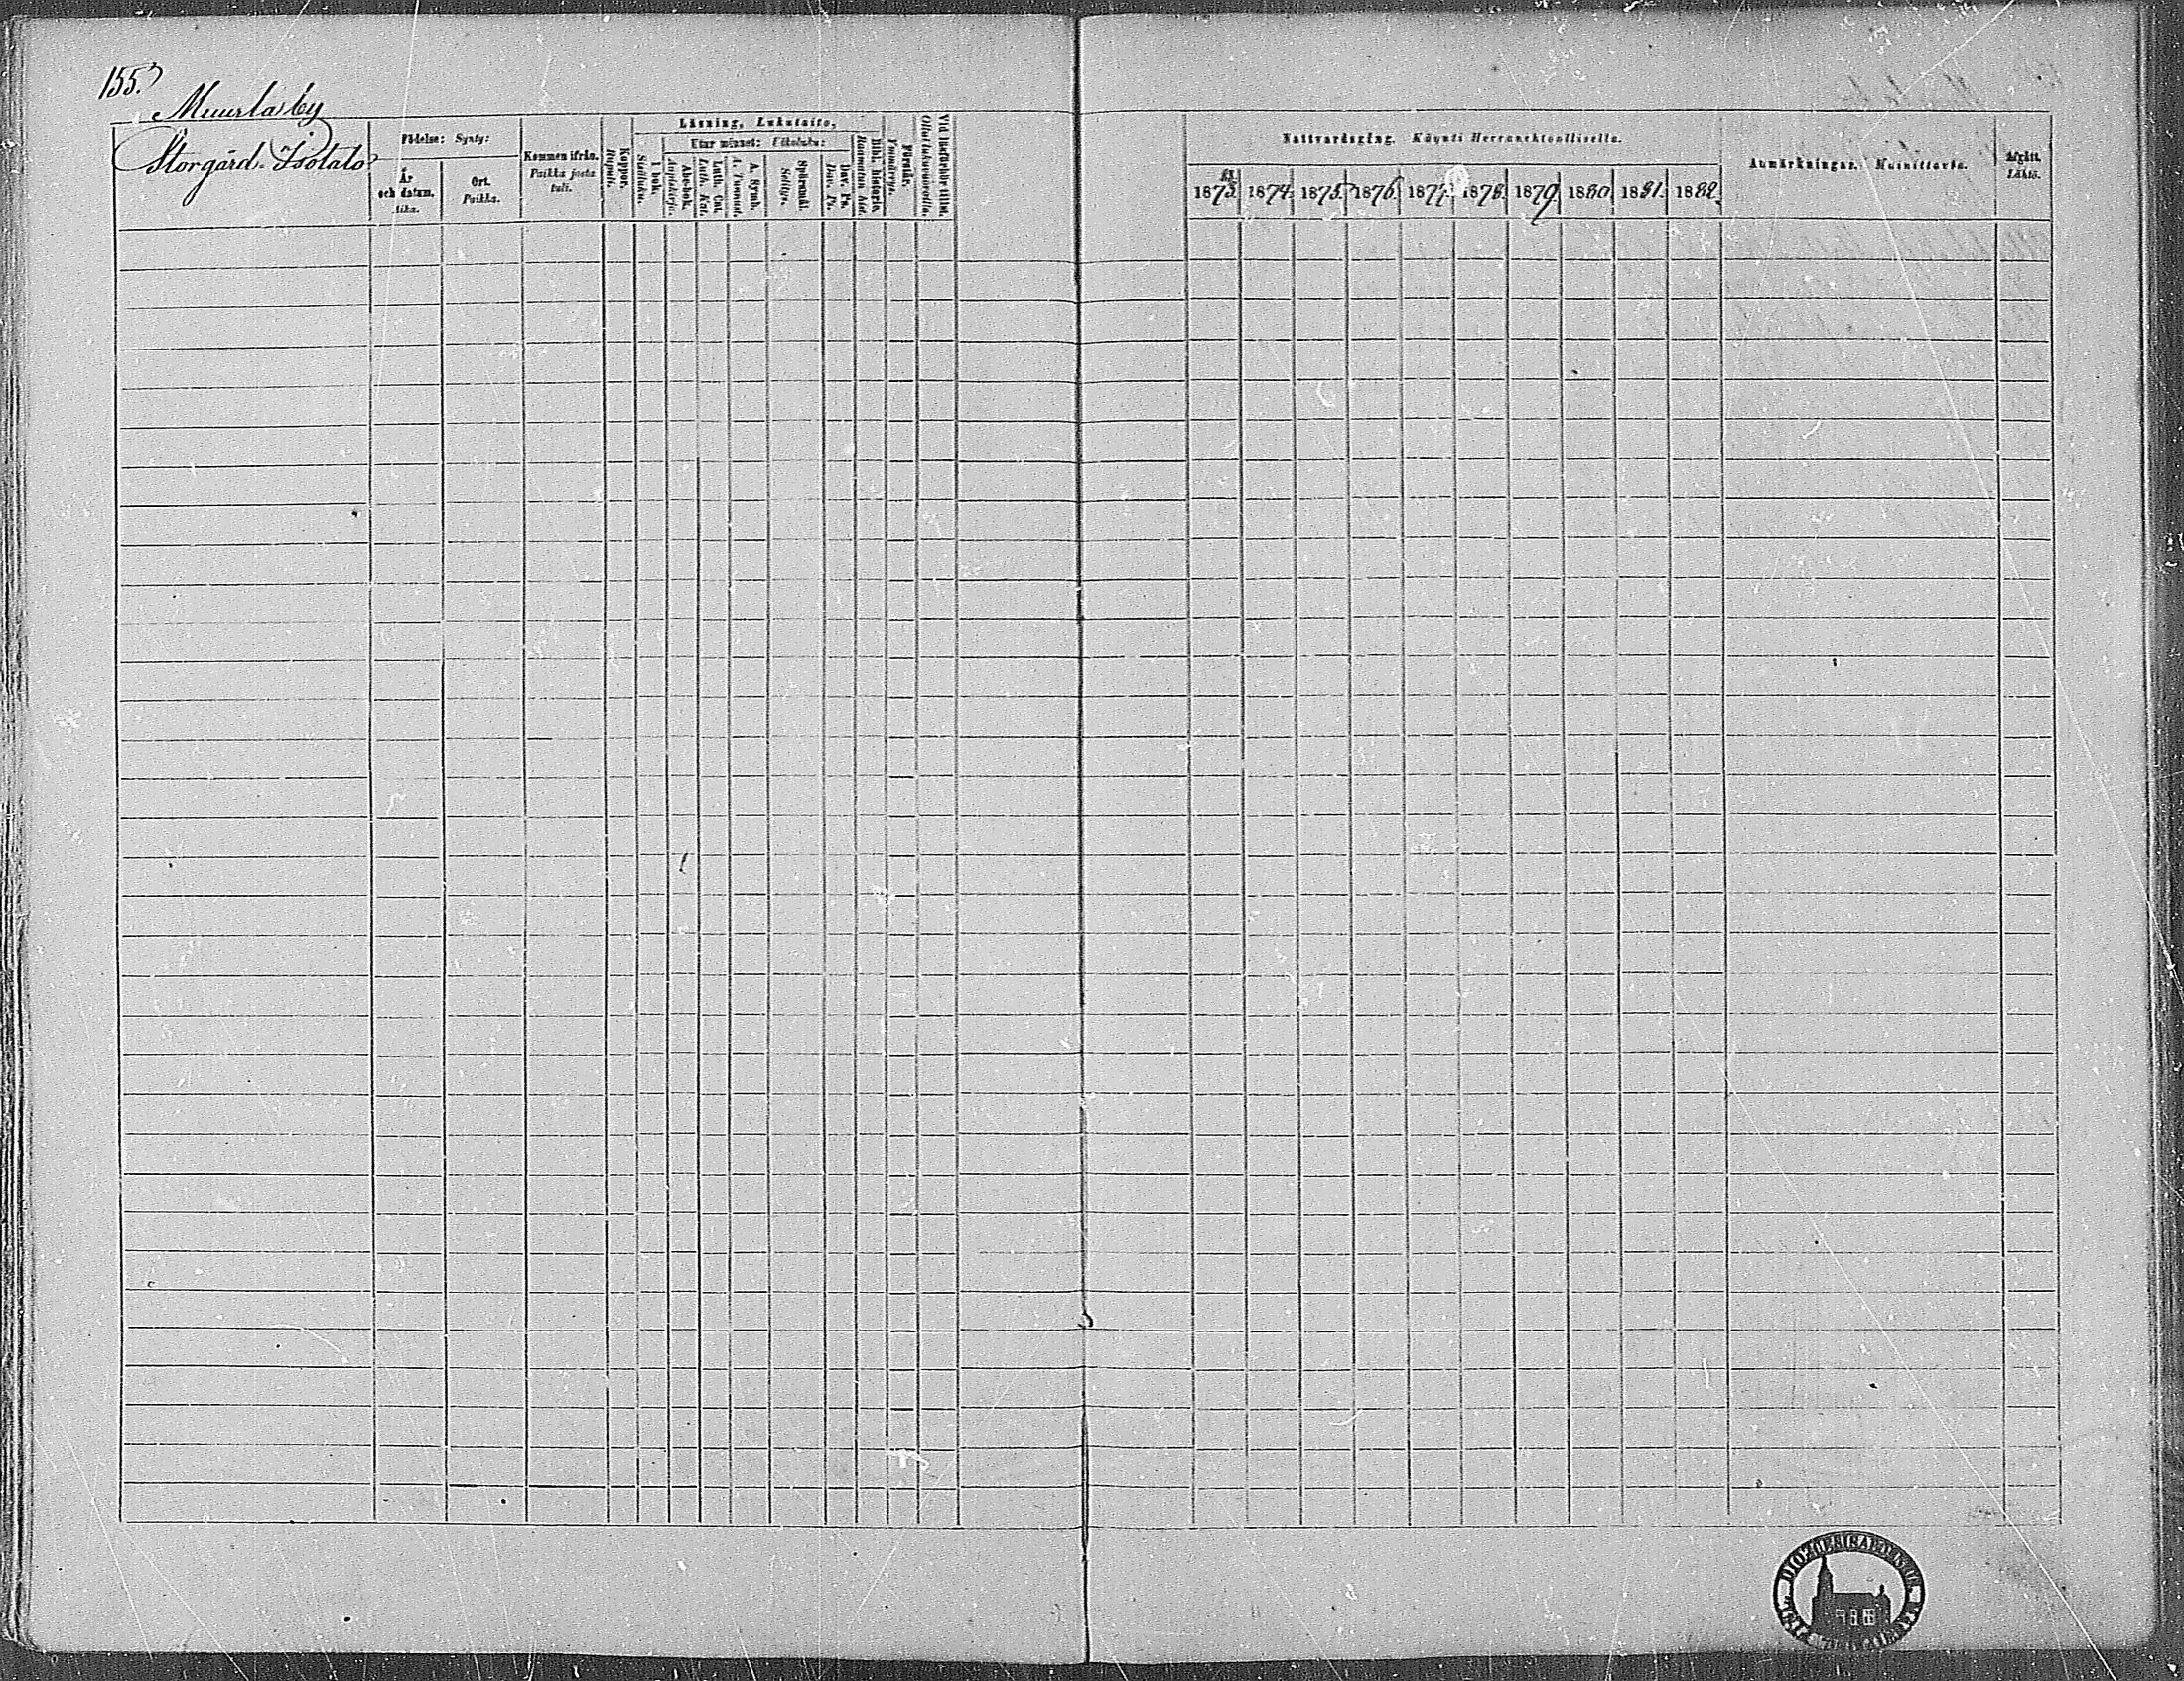 155.
Muurlaby
Storgård. Isotalo
Födelse: Synty:
År och datum. Aika.
Ort. Paikka.
Kommen ifrån. Paikka josta tuli.
Koppor. Rupuli.
Läsning. Lukutaito.
I bok. Sisältä.
Utur minnet: Ulkoluku:
Abc-bok. Aapiskirja.
Luth. Cat. Luth. Kat.
A. Symb. A. Tunnust.
Spörsmål. Selitys.
Dav. Ps. Dav. Ps.
Bibl. historie. Raamatun hist.
Förstår. Ymmärrys.
Vid läsförhör tillst. Ollut lukuvuorolla.
Nattvardsgång. Käynti Herranehtoollisella.
1873. 1874. 1875. 1876. 1877. 1878. 1879. 1880. 1881. 1882.
Anmärkningar. Muistettavia.
Afgått. Lähtö.